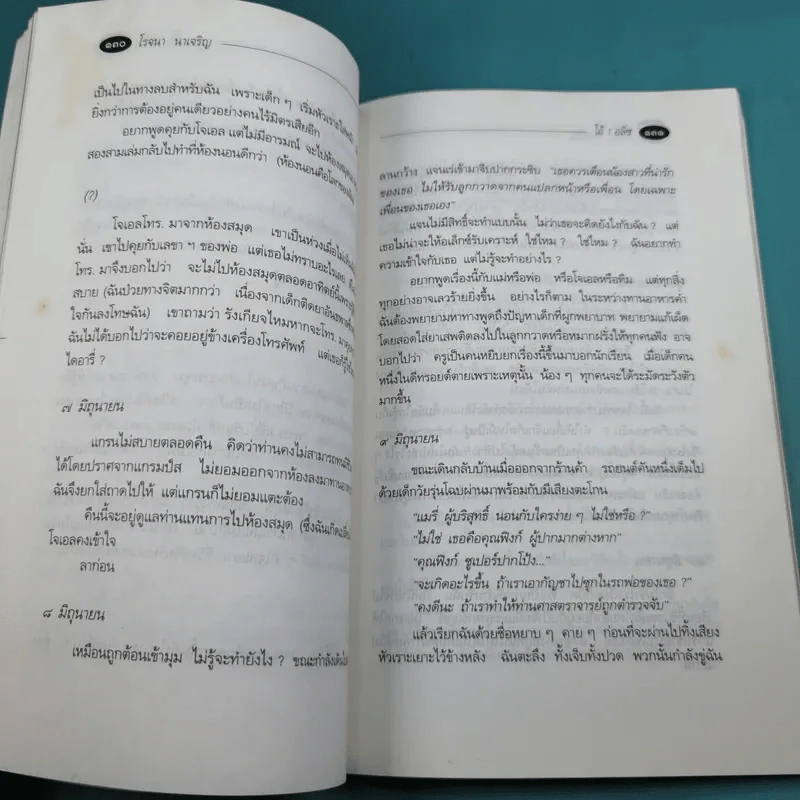 ๑๓๐ โรจนา นาเจริญ
เป็นไปในทางลบสำหรับฉัน เพราะเด็ก ๆ เริ่มหัวเราะใส่หน้า
ยิ่งกว่าการต้องอยู่คนเดียวอย่างคนไร้มิตรเสียอีก
อยากพูดคุยกับโจเอล แต่ไม่มีอารมณ์ จะไปห้องสมุด
สองสามเล่มกลับไปทำที่ห้องนอนดีกว่า (ห้องนอนคือโลกของฉัน
(?)
โจเอลโทร. มาจากห้องสมุด เขาเป็นห่วงเมื่อไม่เห็นฉัน
นั่น เขาไปคุยกับเลขา ฯ ของพ่อ แต่เธอไม่ทราบอะไรเลย
โทร. มาจึงบอกไปว่า จะไม่ไปห้องสมุดตลอดอาทิตย์นี้เพราะ
สบาย (ฉันป่วยทางจิตมากกว่า เนื่องจากเด็กติดยาอันธพาล
ใจกันลงโทษฉัน) เขาถามว่า รังเกียจไหมหากจะโทร. มาคุย
ฉันไม่ได้บอกไปว่าจะคอยอยู่ข้างเครื่องโทรศัพท์ แต่เธอก็รู้ใช่ไหม
ไดอารี่ ?
๗ มิถุนายน
แกรนไม่สบายตลอดคืน คิดว่าท่านคงไม่สามารถทนมีชีวิต
ได้โดยปราศจากแกรมป์ส ไม่ยอมออกจากห้องลงมาทานอาหาร
ฉันจึงยกใส่ถาดไปให้ แต่แกรนก็ไม่ยอมแตะต้อง
คืนนี้จะอยู่ดูแลท่านแทนการไปห้องสมุด (ซึ่งฉันเกิดเปลี่ยน
โจเอลคงเข้าใจ
ลาก่อน
๘ มิถุนายน
เหมือนถูกต้อนเข้ามุม ไม่รู้จะทำยังไง ? ขณะกำลังเดิน
โอ้ ! อลิซ ๑๓๑
ลานกว้าง แจนเร่เข้ามาจีบปากกระซิบ "เธอควรเตือนน้องสาวที่น่ารัก
ของเธอ ไม่ให้รับลูกกวาดจากคนแปลกหน้าหรือเพื่อน โดยเฉพาะ
เพื่อนของเธอเอง"
แจนไม่มีสิทธิ์จะทำแบบนั้น ไม่ว่าเธอจะคิดยังไงกับฉัน ? แต่
เธอไม่น่าจะให้อเล็กซ์รับเคราะห์ ใช่ไหม ? ใช่ไหม ? ฉันอยากทำ
ความเข้าใจกับเธอ แต่ไม่รู้จะทำอย่างไร ?
อยากพูดเรื่องนี้กับแม่หรือพ่อ หรือโจเอลหรือทิม แต่ทุกสิ่ง
ทุกอย่างอาจเลวร้ายยิ่งขึ้น อย่างไรก็ตาม ในระหว่างทานอาหารค่ำ
ฉันต้องพยายามหาทางพูดถึงปัญหาเด็กที่ผูกพยาบาท พยายามแก้เผ็ด
โดยสอดใส่ยาเสพติดลงไปในลูกกวาดหรือหมากฝรั่งให้ทุกคนฟัง อาจ
บอกไปว่า ครูเป็นคนหยิบยกเรื่องนี้ขึ้นมาบอกนักเรียน เมื่อเด็กคน
หนึ่งในดีทรอยต์ตายเพราะเหตุนั้น น้อง ๆ ทุกคนจะได้ระมัดระวังตัว
มากขึ้น
๙ มิถุนายน
ขณะเดินกลับบ้านเมื่อออกจากร้านค้า รถยนต์คันหนึ่งเต็มไป
ด้วยเด็กวัยรุ่นโฉบผ่านมาพร้อมกับมีเสียงตะโกน
"แมรี่ ผู้บริสุทธิ์ นอนกับใครง่าย ๆ ไม่ใช่หรือ ?"
"ไม่ใช่ เธอคือคุณฟิงก์ ผู้ปากมากต่างหาก"
"คุณฟิงก์ ซูเปอร์ปากโป้ง..."
"จะเกิดอะไรขึ้น ถ้าเราเอากัญชาไปซุกในรถพ่อของเธอ ?"
"คงดีนะ ถ้าเราทำให้ท่านศาสตราจารย์ถูกตำรวจจับ"
แล้วเรียกฉันด้วยชื่อหยาบ ๆ คาย ๆ ก่อนที่จะผ่านไปทิ้งเสียง
หัวเราะเยาะไว้ข้างหลัง ฉันตะลึง ทั้งเจ็บทั้งปวด พวกนั้นกำลังขู่ฉัน